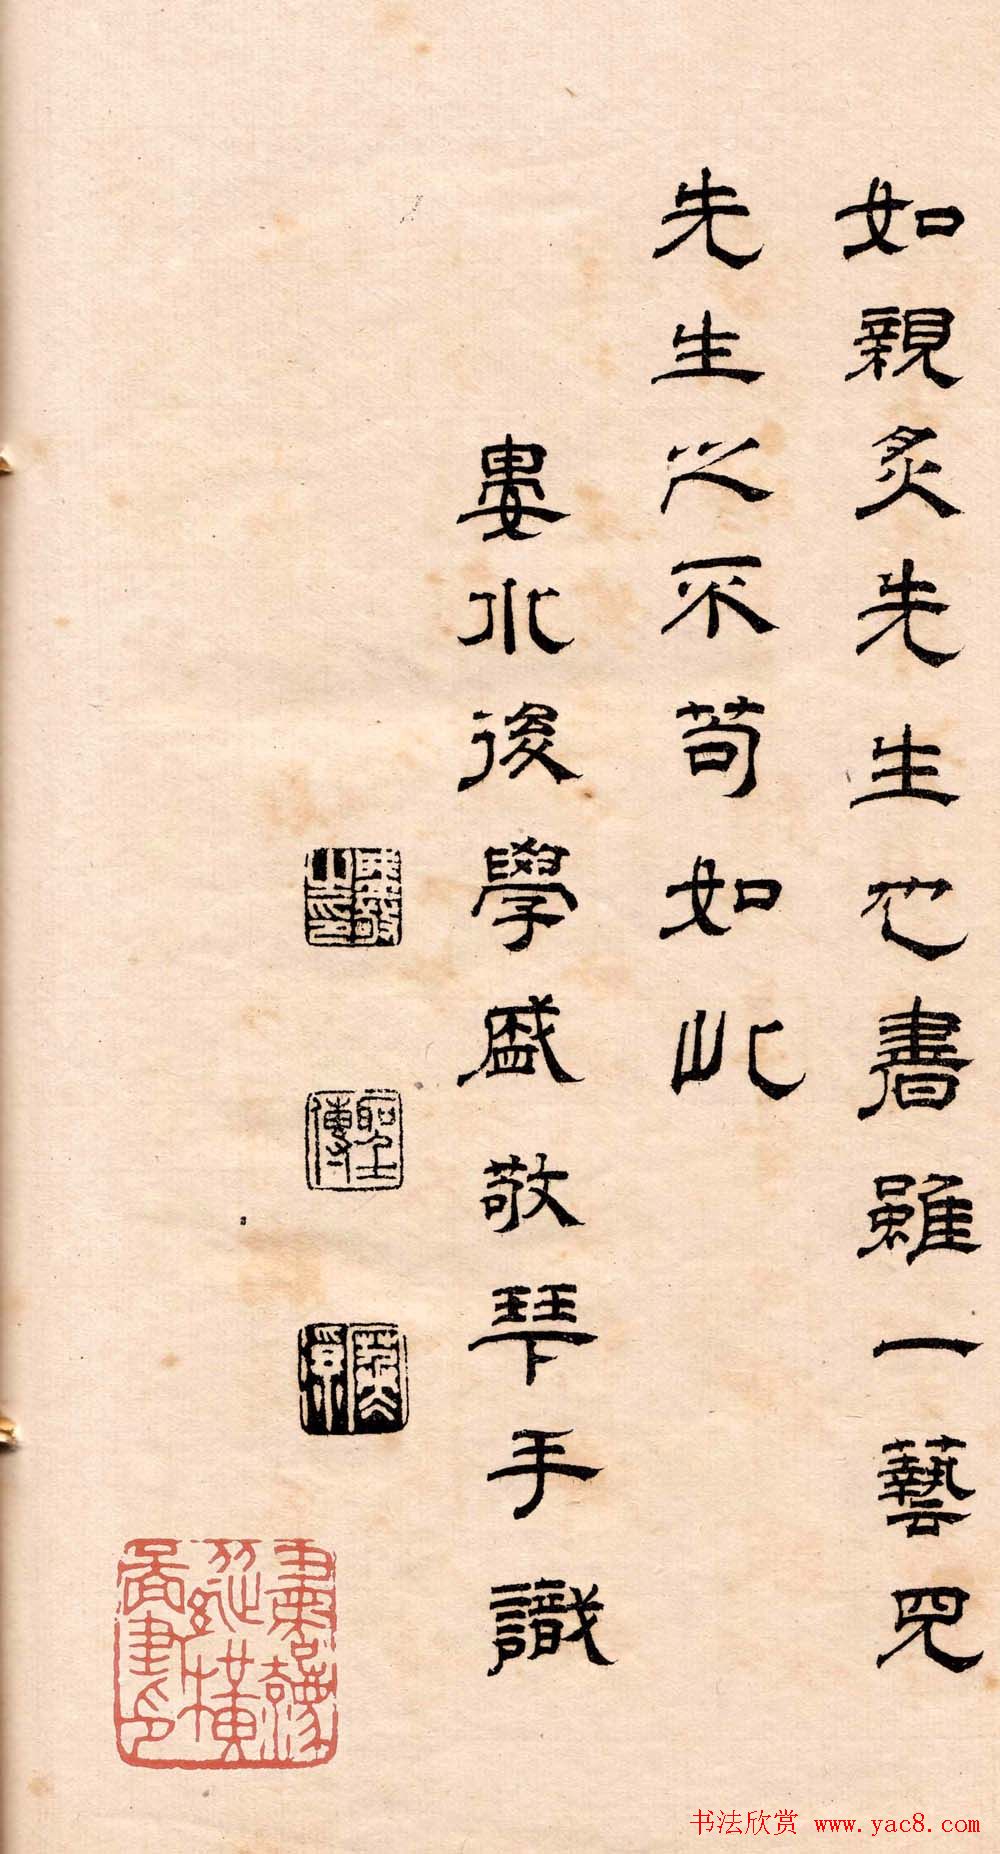 如親炙先生也書雖一藝見
先生之不苟如此
婁水後學盛敬琴手識
書法欣赏 www.yac8.com